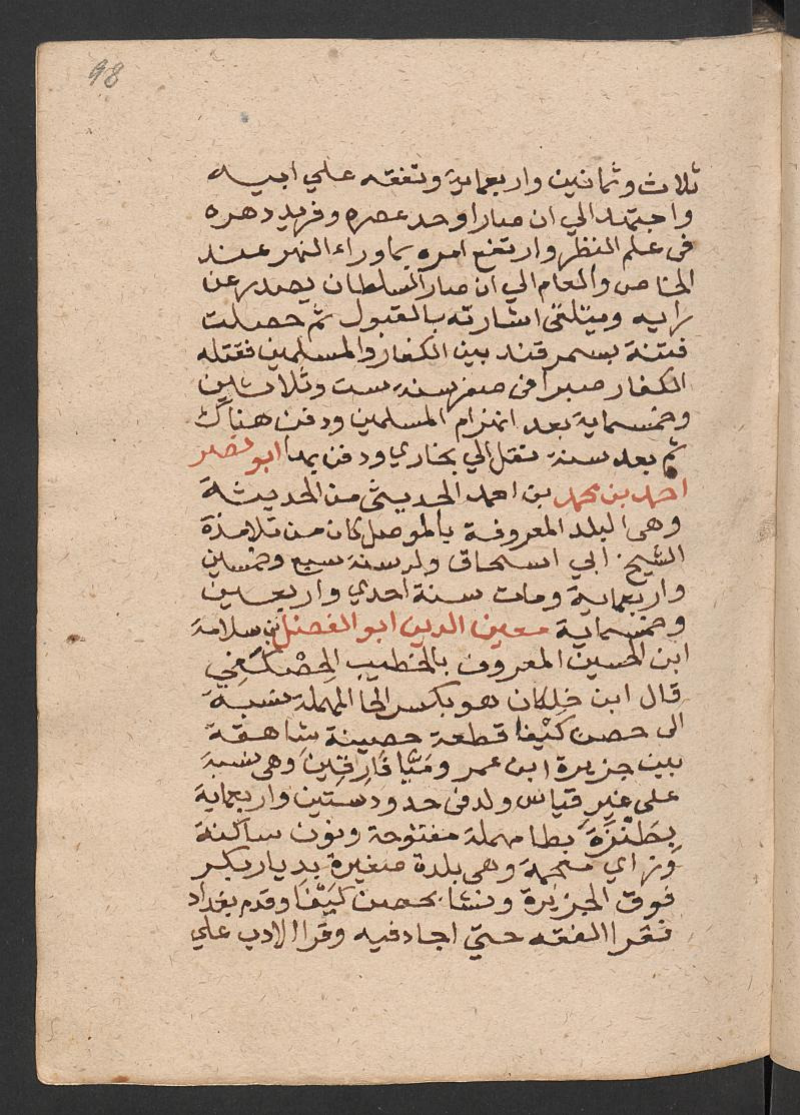 98
ثلاث وثمانين واربعماية وتفقه علي ابيه
واجتهد الي ان صار اوحد عصره وفريد دهره
في علم النظر وارتفع امره بماوراء النهر عند
الخاص والعام الي ان صار السلطان يصدر عن
رايه ويتلقى اشارته بالقبول ثم حصلت
فتنة بسمرقند بين الكفار والمسلمين فقتله
الكفار صبرا في صفر سنة ست وثلاثين
وخمسماية بعد انهزام المسلمين ودفن هناك
ثم بعد سنة نقل الي بخاري ودفن بها ابو نصر
احمد بن محمد بن احمد الحديثي من الحديثة
وهي البلد المعروفة بالموصل كان من تلامذة
الشيخ ابي اسحاق ولد سنة سبع وخمسين
واربعماية ومات سنة احدي واربعين
وخمسماية معين الدين ابو الفضل بن سلامة
ابن الحسين المعروف بالخطيب الحِصْكَفي
قال ابن خلكان هو بكسر الحا المهملة نسبة
الى حصن كَيْفا قطعة حصينة شاهقة
بين جزيرة ابن عمر ومَيّافارقين وهي نسبة
على غير قياس ولد في حدود ستين واربعماية
بطَنْزَة بطا مهملة مفتوحة ونون ساكنة
وزاي معجمة وهي بلدة صغيرة بديار بكر
فوق الجزيرة ونشا بحصن كَيْفَا وقدم بغداد
فقرا الفقه حتي اجاد فيه وقرا الادب علي